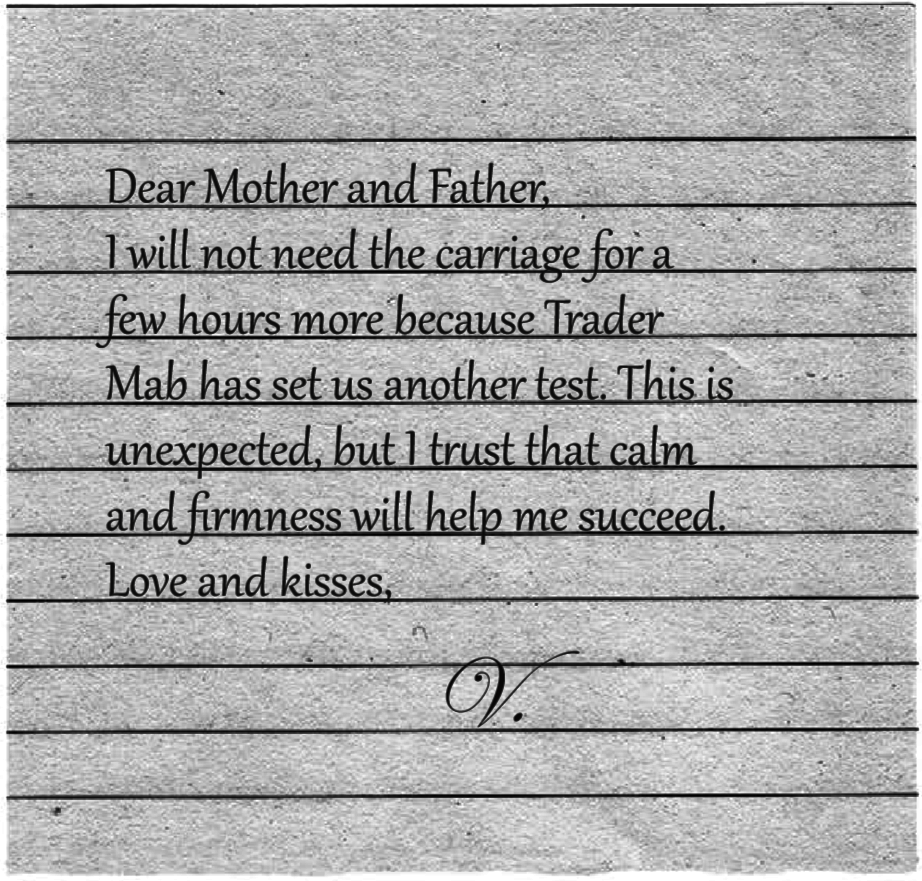 Dear Mother and Father,
I will not need the carriage for a
few hours more because Trader
Mab has set us another test. This is
unexpected, but I trust that calm
and firmness will help me succeed.
Love and kisses,
V.